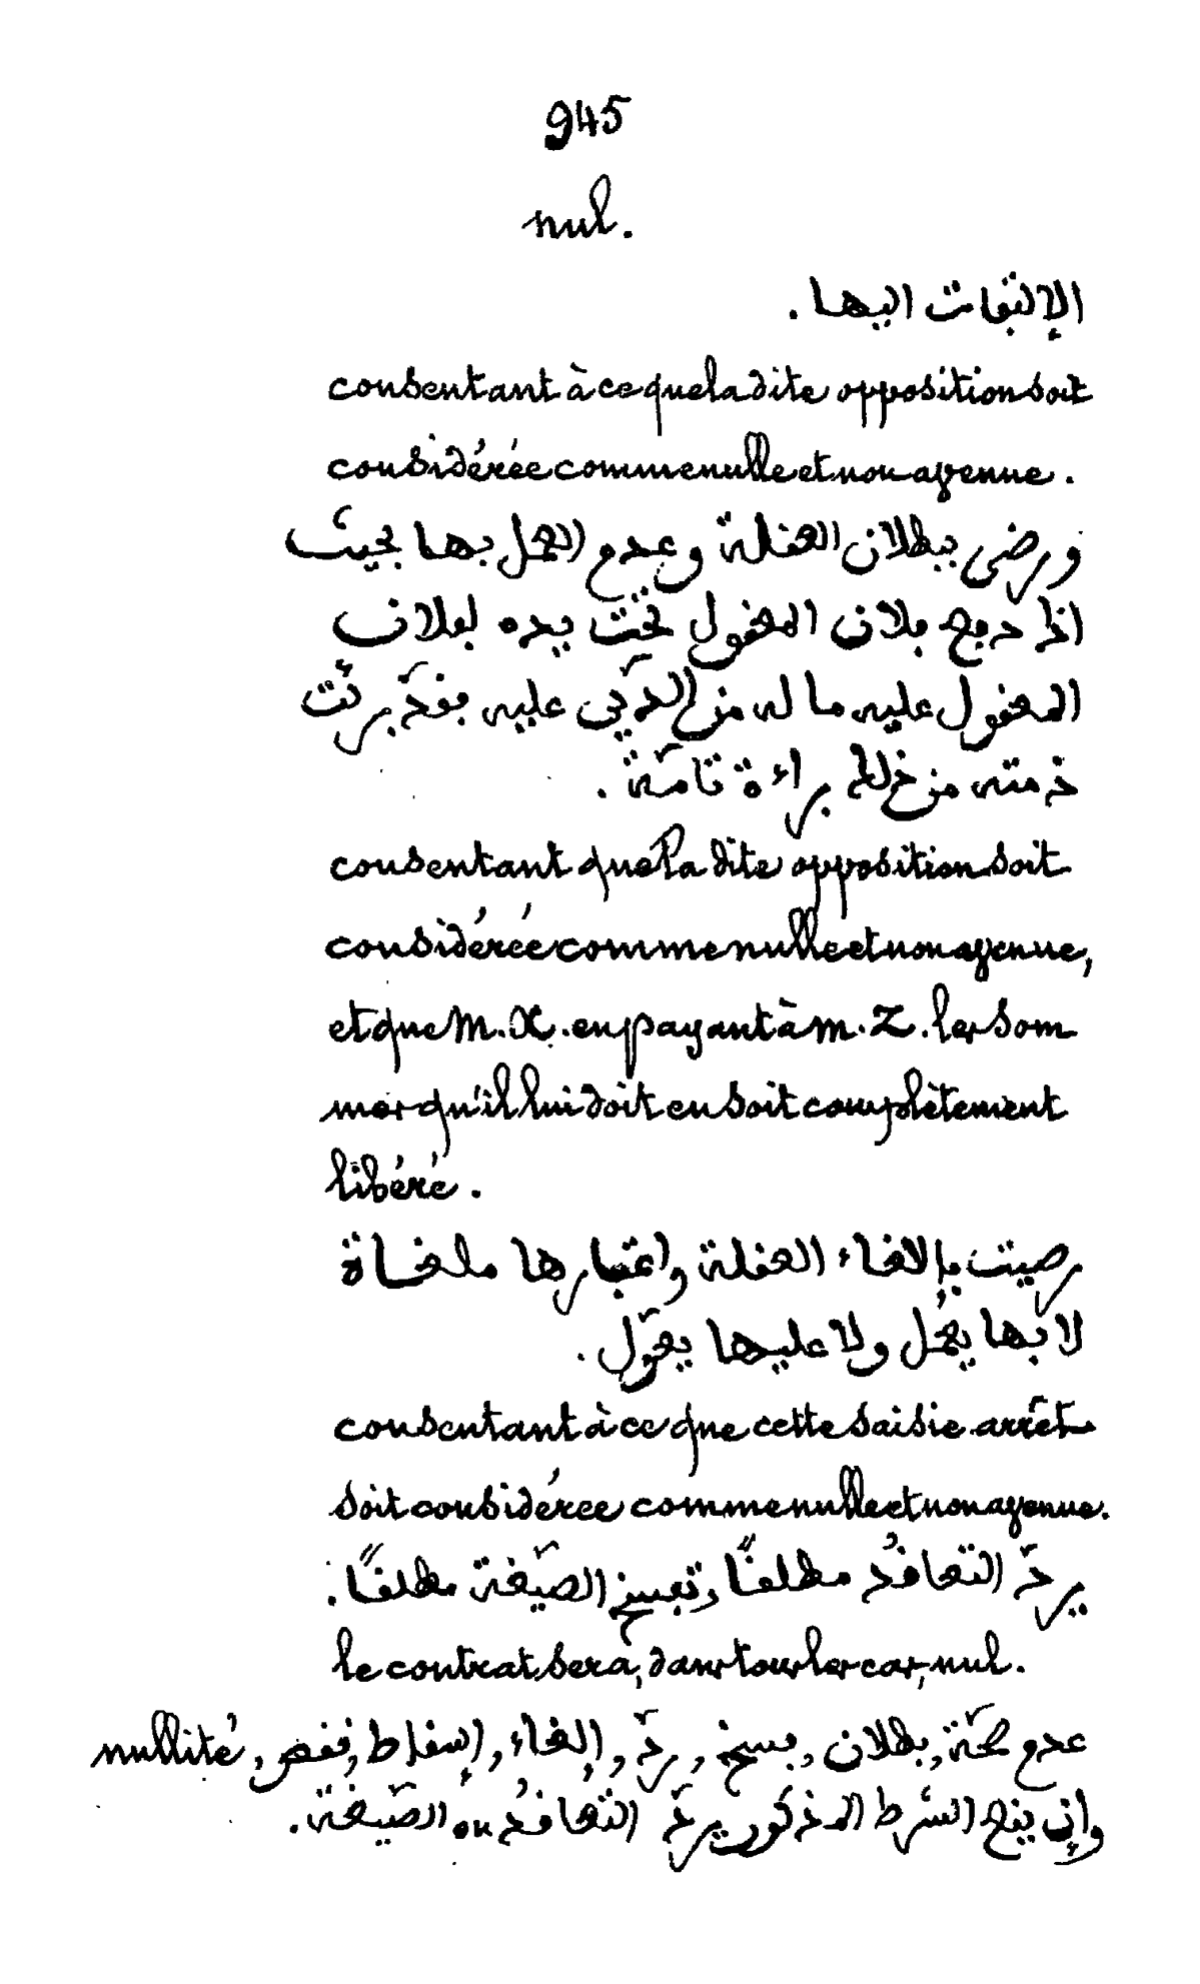 945
nul.
الإلتفات اليها.
consentant à ce que la dite opposition soit
considérée comme nulle et non avenue.
ورضى ببطلان العقلة وعدم العمل بها بحيث
اذا دفع فلان المعقول تحت يده لفلان
المعقول عليه ما له من الدّين عليه فقد برئت
ذمته من ذلك براءة تامّة.
consentant que la dite opposition soit
considérée comme nulle et non avenue,
et que M. X. en payant à M. Z. les som
mes qu'il lui doit en soit complètement
libéré.
رضيت بإلغاء العقلة واعتبارها ملغاة
لا بها يعمل ولا عليها يعوّل.
consentant à ce que cette saisie arrêt
soit considérée comme nulle et non avenue.
يردّ التعاقدُ مطلقًا, تفسخ الصّيغة مطلقًا.
le contrat sera, dans tous les cas, nul.
nullité, عدم صحّة, بطلان, فسخ, ردّ, إلغاء, إسقاط, نقض,
وإن يقع الشرط المذكور يردّ التعاقدُ ou الصّيغة.